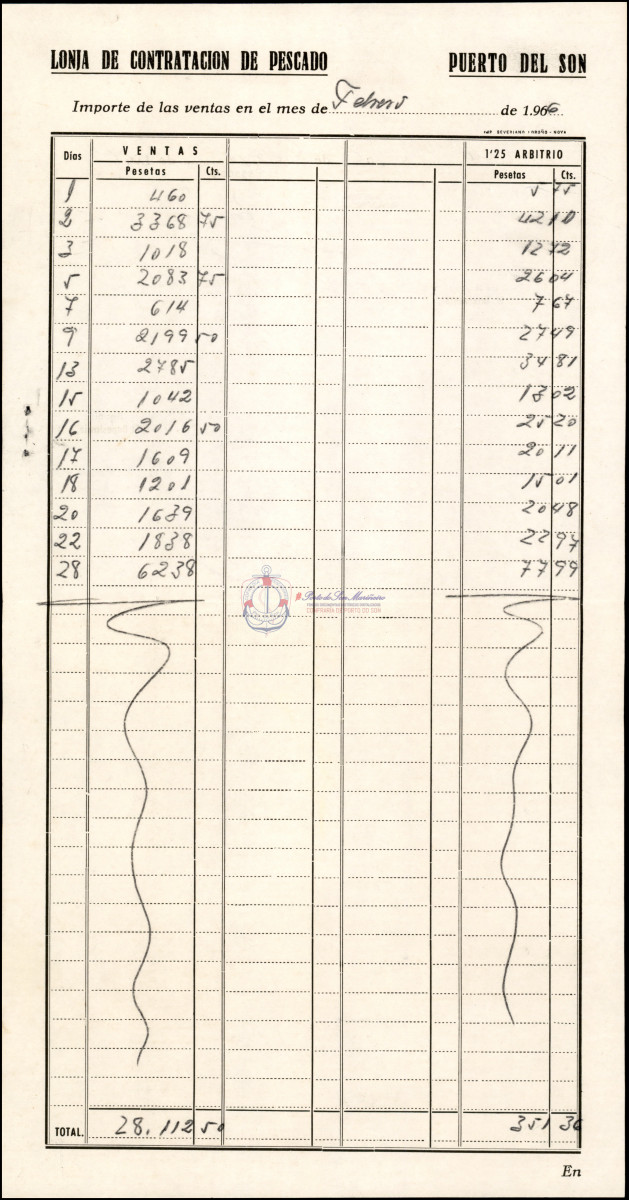 LONJA DE CONTRATACION DE PESCADO PUERTO DEL SON
Importe de las ventas en el mes de Febrero de 1.966
IMP. SEVERIANO - NOYA
Días VENTAS 1'25 ARBITRIO
Pesetas Cts. Pesetas Cts.
1 460 5 75
2 3368 75 42 10
3 1018 12 72
5 2083 75 26 04
7 614 7 67
9 2199 50 27 49
13 2785 34 81
15 1042 13 02
16 2016 50 25 20
17 1609 20 11
18 1201 15 01
20 1639 20 48
22 1838 22 97
28 6238 77 99
Porto do Son Mariñeiro
CONFRARÍA DE PORTO DO SON
TOTAL. 28.112 50 351 36
En